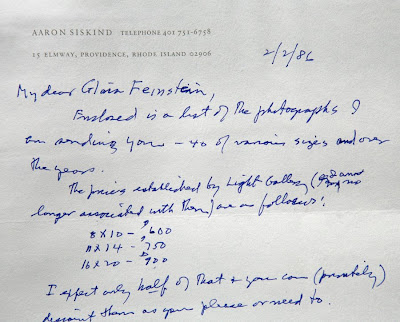 AARON SISKIND TELEPHONE 401 751-6758
15 ELMWAY, PROVIDENCE, RHODE ISLAND 02906
2/2/86
My dear Gloria Feinstein,
Enclosed is a list of the photographs I
am sending you - 40 of various sizes and over
the years.
The prices established by Light Gallery (I am no
longer associated with them) are as follows:
8 x 10 - $600
11 x 14 - $750
16 x 20 - $900
I expect only half of that + you can (privately)
discount them as you please or need to.